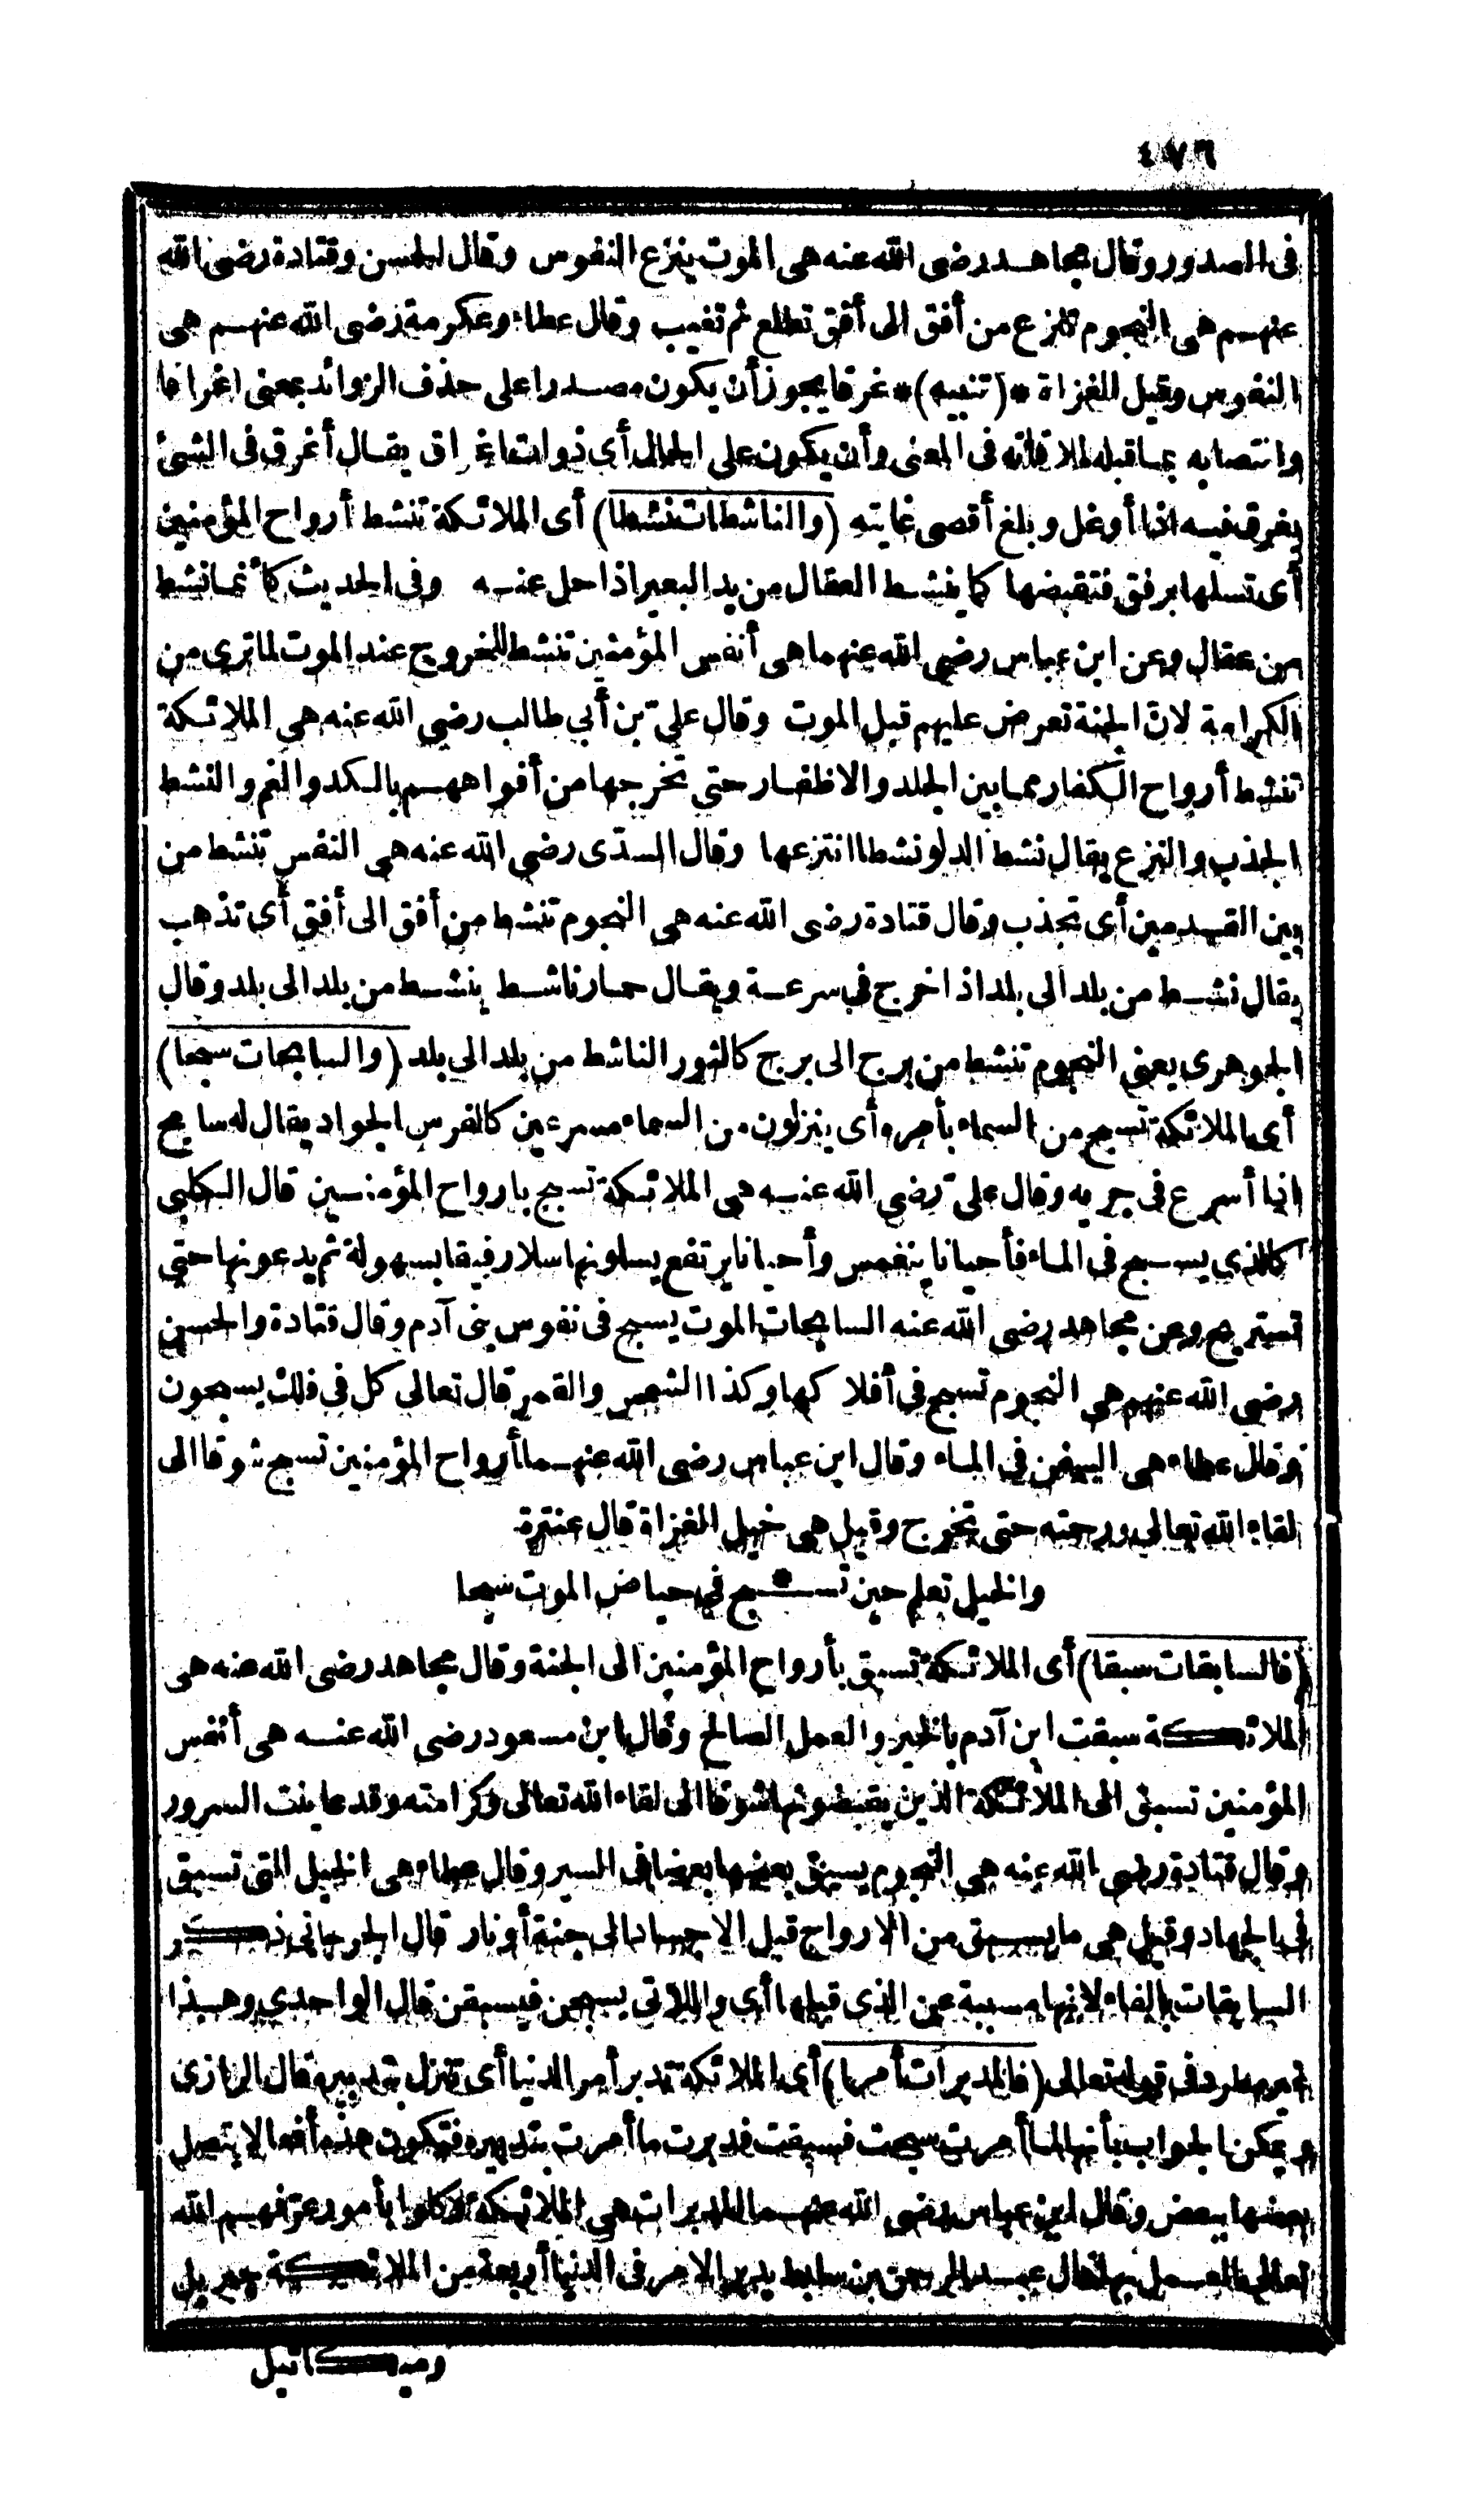 ٤٧٦
فى الصدور وقال مجاهد رضى الله عنه هى الموت ينزع النفوس وقال الحسن وقتادة رضى الله
عنهم هى النجوم تنزع من أفق الى أفق تطلع ثم تغيب وقال عطاء وعكرمة رضى الله عنهم هى
النفوس وقيل الغزاة *(تنبيه)* غرقا يجوز أن يكون مصدرا على حذف الزوائد بمعنى اغراقا
وانتصابه بما قبله لملاقاته فى المعنى وأن يكون على الحال أى ذوات اغراق يقال أغرق فى الشئ
يغرق فيه اذا أوغل وبلغ أقصى غايته (والناشطات نشطا) أى الملائكة تنشط أرواح المؤمنين
أى تسلها برفق فتقبضها كما ينشط العقال من يد البعير اذا حل عنه وفى الحديث كأنما نشط
من عقال وعن ابن عباس رضى الله عنهما هى أنفس المؤمنين تنشط للخروج عند الموت لما ترى من
الكرامة لان الجنة تعرض عليهم قبل الموت وقال على بن أبى طالب رضى الله عنه هى الملائكة
تنشط أرواح الكفار مما بين الجلد والاظفار حتى تخرجها من أفواههم بالكد والغم والنشط
الجذب والنزع يقال نشط الدلو نشطا انتزعها وقال السدى رضى الله عنه هى النفس تنشط من
بين القدمين أى تجذب وقال قتادة رضى الله عنه هى النجوم تنشط من أفق الى أفق أى تذهب
يقال نشط من بلد الى بلد اذا خرج فى سرعة ويقال حمار ناشط ينشط من بلد الى بلد وقال
الجوهرى يعنى النجوم تنشط من برج الى برج كالثور الناشط من بلد الى بلد (والسابحات سبحا)
أى الملائكة تسبح من السماء بأمره أى ينزلون من السماء مسرعين كالفرس الجواد يقال له سابح
اذا أسرع فى جريه وقال على رضى الله عنه هى الملائكة تسبح بارواح المؤمنين قال الكلبى
كالذى يسبح فى الماء فأحيانا ينغمس وأحيانا يرتفع يسلونها سلا رفيقا بسهولة ثم يدعونها حتى
تستريح وعن مجاهد رضى الله عنه السابحات الموت يسبح فى نفوس بنى آدم وقال قتادة والحسن
رضى الله عنهم هى النجوم تسبح فى أفلاكها وكذا الشمس والقمر قال تعالى كل فى فلك يسبحون
وقال عطاء هى السفن فى الماء وقال ابن عباس رضى الله عنهما أرواح المؤمنين تسبح شوقا الى
لقاء الله تعالى ورحمته حتى تخرج وقيل هى خيل الغزاة قال عنترة
والخيل تعلم حين تسبح فى حياض الموت سبحا
(فالسابقات سبقا) أى الملائكة تسبق بأرواح المؤمنين الى الجنة وقال مجاهد رضى الله عنه هى
الملائكة سبقت ابن آدم بالخير والعمل الصالح وقال ابن مسعود رضى الله عنه هى أنفس
المؤمنين تسبق الى الملائكة الذين يقبضونها شوقا الى لقاء الله تعالى وكرامته وقد عاينت السرور
وقال قتادة رضى الله عنه هى النجوم يسبق بعضها بعضا فى السير وقال عطاء هى الخيل التى تسبق
فى الجهاد وقيل هى ما يسبق من الارواح قبل الاجساد الى جنة أو نار قال الجرجانى ذكر
السابقات بالفاء لانها مسببة عن الذى قبلها أى واللاتى يسبحن فيسبقن قال الواحدى وهذا
غير مطرد فى قوله تعالى (فالمدبرات أمرا) أى الملائكة تدبر أمر الدنيا أى تنزل بتدبيره قال الرازى
ويمكن الجواب بأنها لما أمرت سبحت فسبقت فدبرت ما أمرت بتدبيره فتكون هذه أفعالا يتصل
بعضها ببعض وقال ابن عباس رضى الله عنهما المدبرات هى الملائكة وكلوا بأمور عرفهم الله
تعالى العمل بها قال عبد الرحمن بن سابط يدبر الامر فى الدنيا أربعة من الملائكة جبريل
وميكائيل